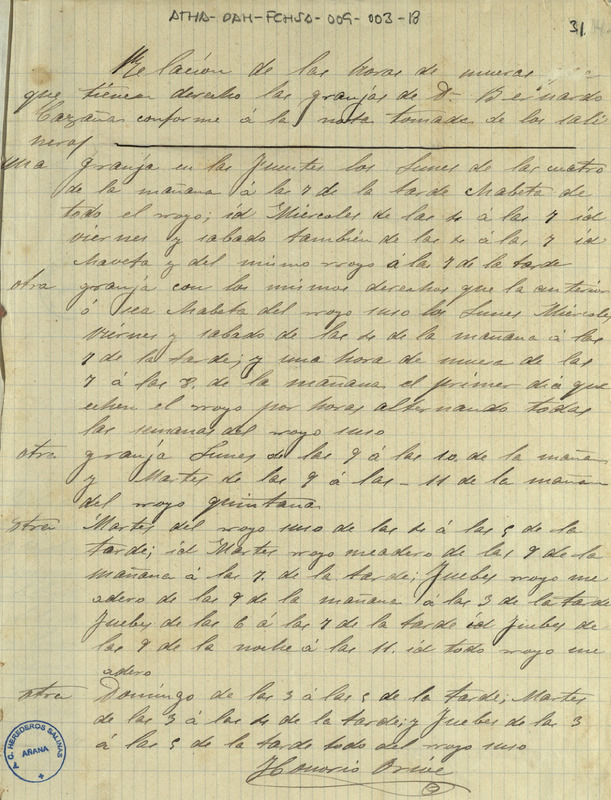 ATHA-DAH-FCHSA-009-003-18
31.
Relación de las horas de mueras
que tienen derecho las granjas de Dn Bernardo
Cazañas conforme á la nota tomada de los sali
neros
una granja en las fuentes los Lunes de las cuatro
de la mañana á las 7 de la tarde Mabeta de
todo el royo; id Miercoles de las 4 á las 7 id
viernes y sabado tambien de las 4 á las 7 id
Maveta y del mismo royo á las 7 de la tarde
otra granja con los mismos derechos que la anterior
ó sea Mabeta del royo suso los Lunes Miercoles
viernes y sabado de las 4 de la mañana á las
7 de la tarde; y una hora de muera de las
7 á las 8. de la mañana el primer dia que
echen el royo por horas alternando todas
las semanas del royo suso
otra granja Lunes de las 9 á las 10. de la mañana
y Martes de las 9 á las - 11 de la mañana
del royo quintana
otra Martes del royo suso de las 4 á las 5 de la
tarde; id Martes royo meadero de las 9 de la
mañana á las 7. de la tarde; Juebes royo me
adero de las 9 de la mañana á las 3 de la tarde
Juebes de las 6 á las 7 de la tarde id Juebes de
las 9 de la noche á las 11. id todo royo me
adero
otra Domingo de las 3 á las 5 de la tarde; Martes
de las 3 á las 4 de la tarde; y Juebes de las 3
á las 5 de la tarde todo del royo suso
Honorio Orive
G. HEREDEROS SALINAS
AÑANA